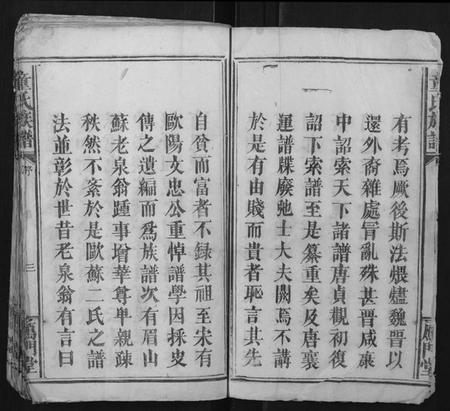 童氏族譜
序
有考焉厥後斯法煨燼魏晋以
還外裔雜處冒亂殊甚晋咸康
中詔索天下諸譜唐貞觀初復
詔下索譜至是纂重矣及唐襄
運譜牒廢弛士大夫闕焉不講
於是有由賤而貴者恥言其先
自貧而富者不録其祖至宋有
歐陽文忠公重悼譜學因採史
傳之遺編而爲族譜次有眉山
蘇老泉翁踵事增華尊卑親疎
秩然不紊於是歐蘇二氏之譜
法並彰於世昔老泉翁有言曰
童氏族譜
序
三
鴈門堂